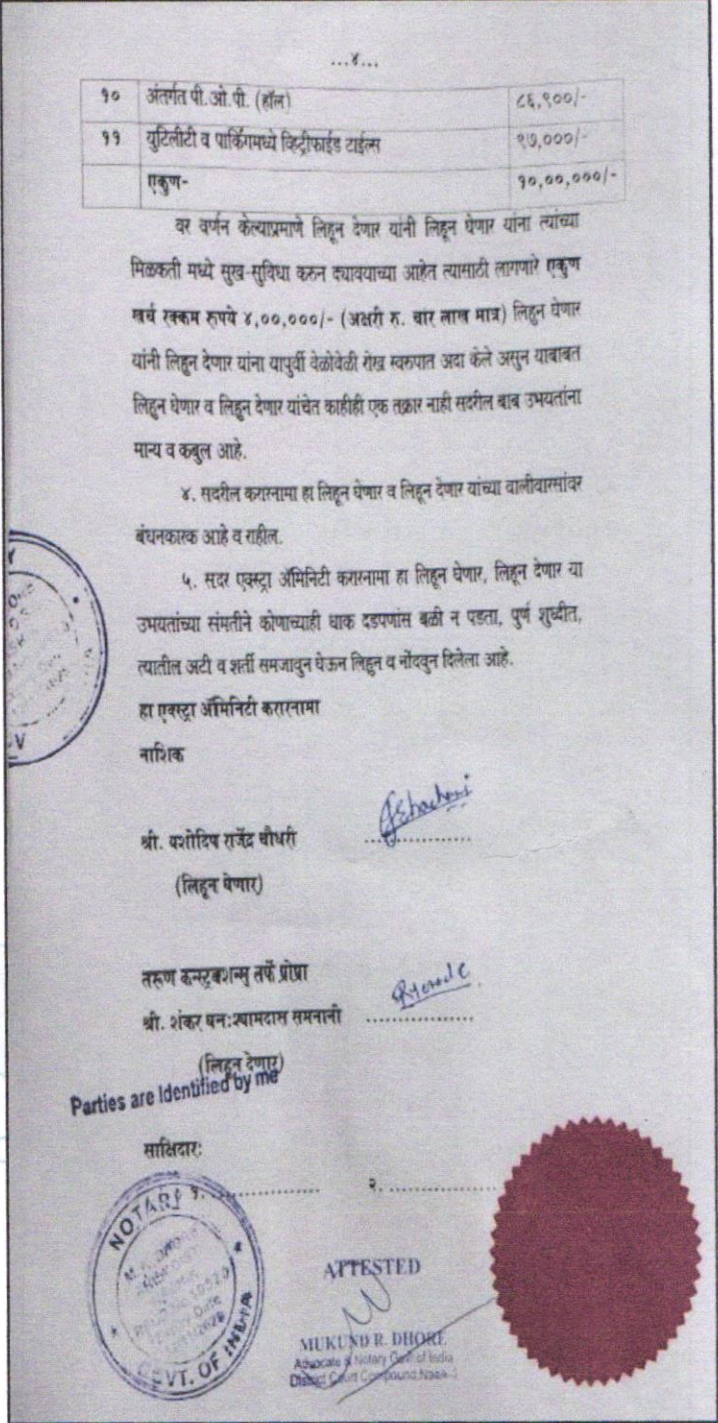 ...४...
१० अंतर्गत पी.ओ.पी. (हॉल) ८६,९००/-
११ युटिलीटी व पार्किंगमध्ये व्हिट्रीफाईड टाईल्स ९७,०००/-
एकुण- १०,००,०००/-
वर वर्णन केल्याप्रमाणे लिहून देणार यांनी लिहून घेणार यांना त्यांच्या
मिळकती मध्ये सुख-सुविधा करुन द्यावयाच्या आहेत त्यासाठी लागणारे एकुण
खर्च रक्कम रुपये ४,००,०००/- (अक्षरी रु. चार लाख मात्र) लिहुन घेणार
यांनी लिहून देणार यांना यापुर्वी वेळोवेळी रोख स्वरुपात अदा केले असुन याबाबत
लिहून घेणार व लिहून देणार यांचेत काहीही एक तक्रार नाही सदरील बाब उभयतांना
मान्य व कबुल आहे.
४. सदरील करारनामा हा लिहून घेणार व लिहून देणार यांच्या वालीवारसांवर
बंधनकारक आहे व राहील.
५. सदर एक्स्ट्रा ॲमिनिटी करारनामा हा लिहून घेणार, लिहून देणार या
उभयतांच्या संमतीने कोणाच्याही धाक दडपणांस बळी न पडता, पुर्ण शुध्दीत,
त्यातील अटी व शर्ती समजावुन घेऊन लिहुन व नोंदवुन दिलेला आहे.
हा एक्स्ट्रा ॲमिनिटी करारनामा
नाशिक
श्री. यशोदिप राजेंद्र चौधरी ..................
(लिहून घेणार)
तरूण कन्स्ट्रक्शन्स् तर्फे प्रोप्रा
श्री. शंकर घन:श्यामदास समनानी ..................
(लिहून देणार)
Parties are Identified by me
साक्षिदार:
१. .................. २. ..................
NOTARY
GOVT. OF INDIA
ATTESTED
MUKUND R. DHORE
Advocate & Notary Govt of India
District Court Compound, Nasik